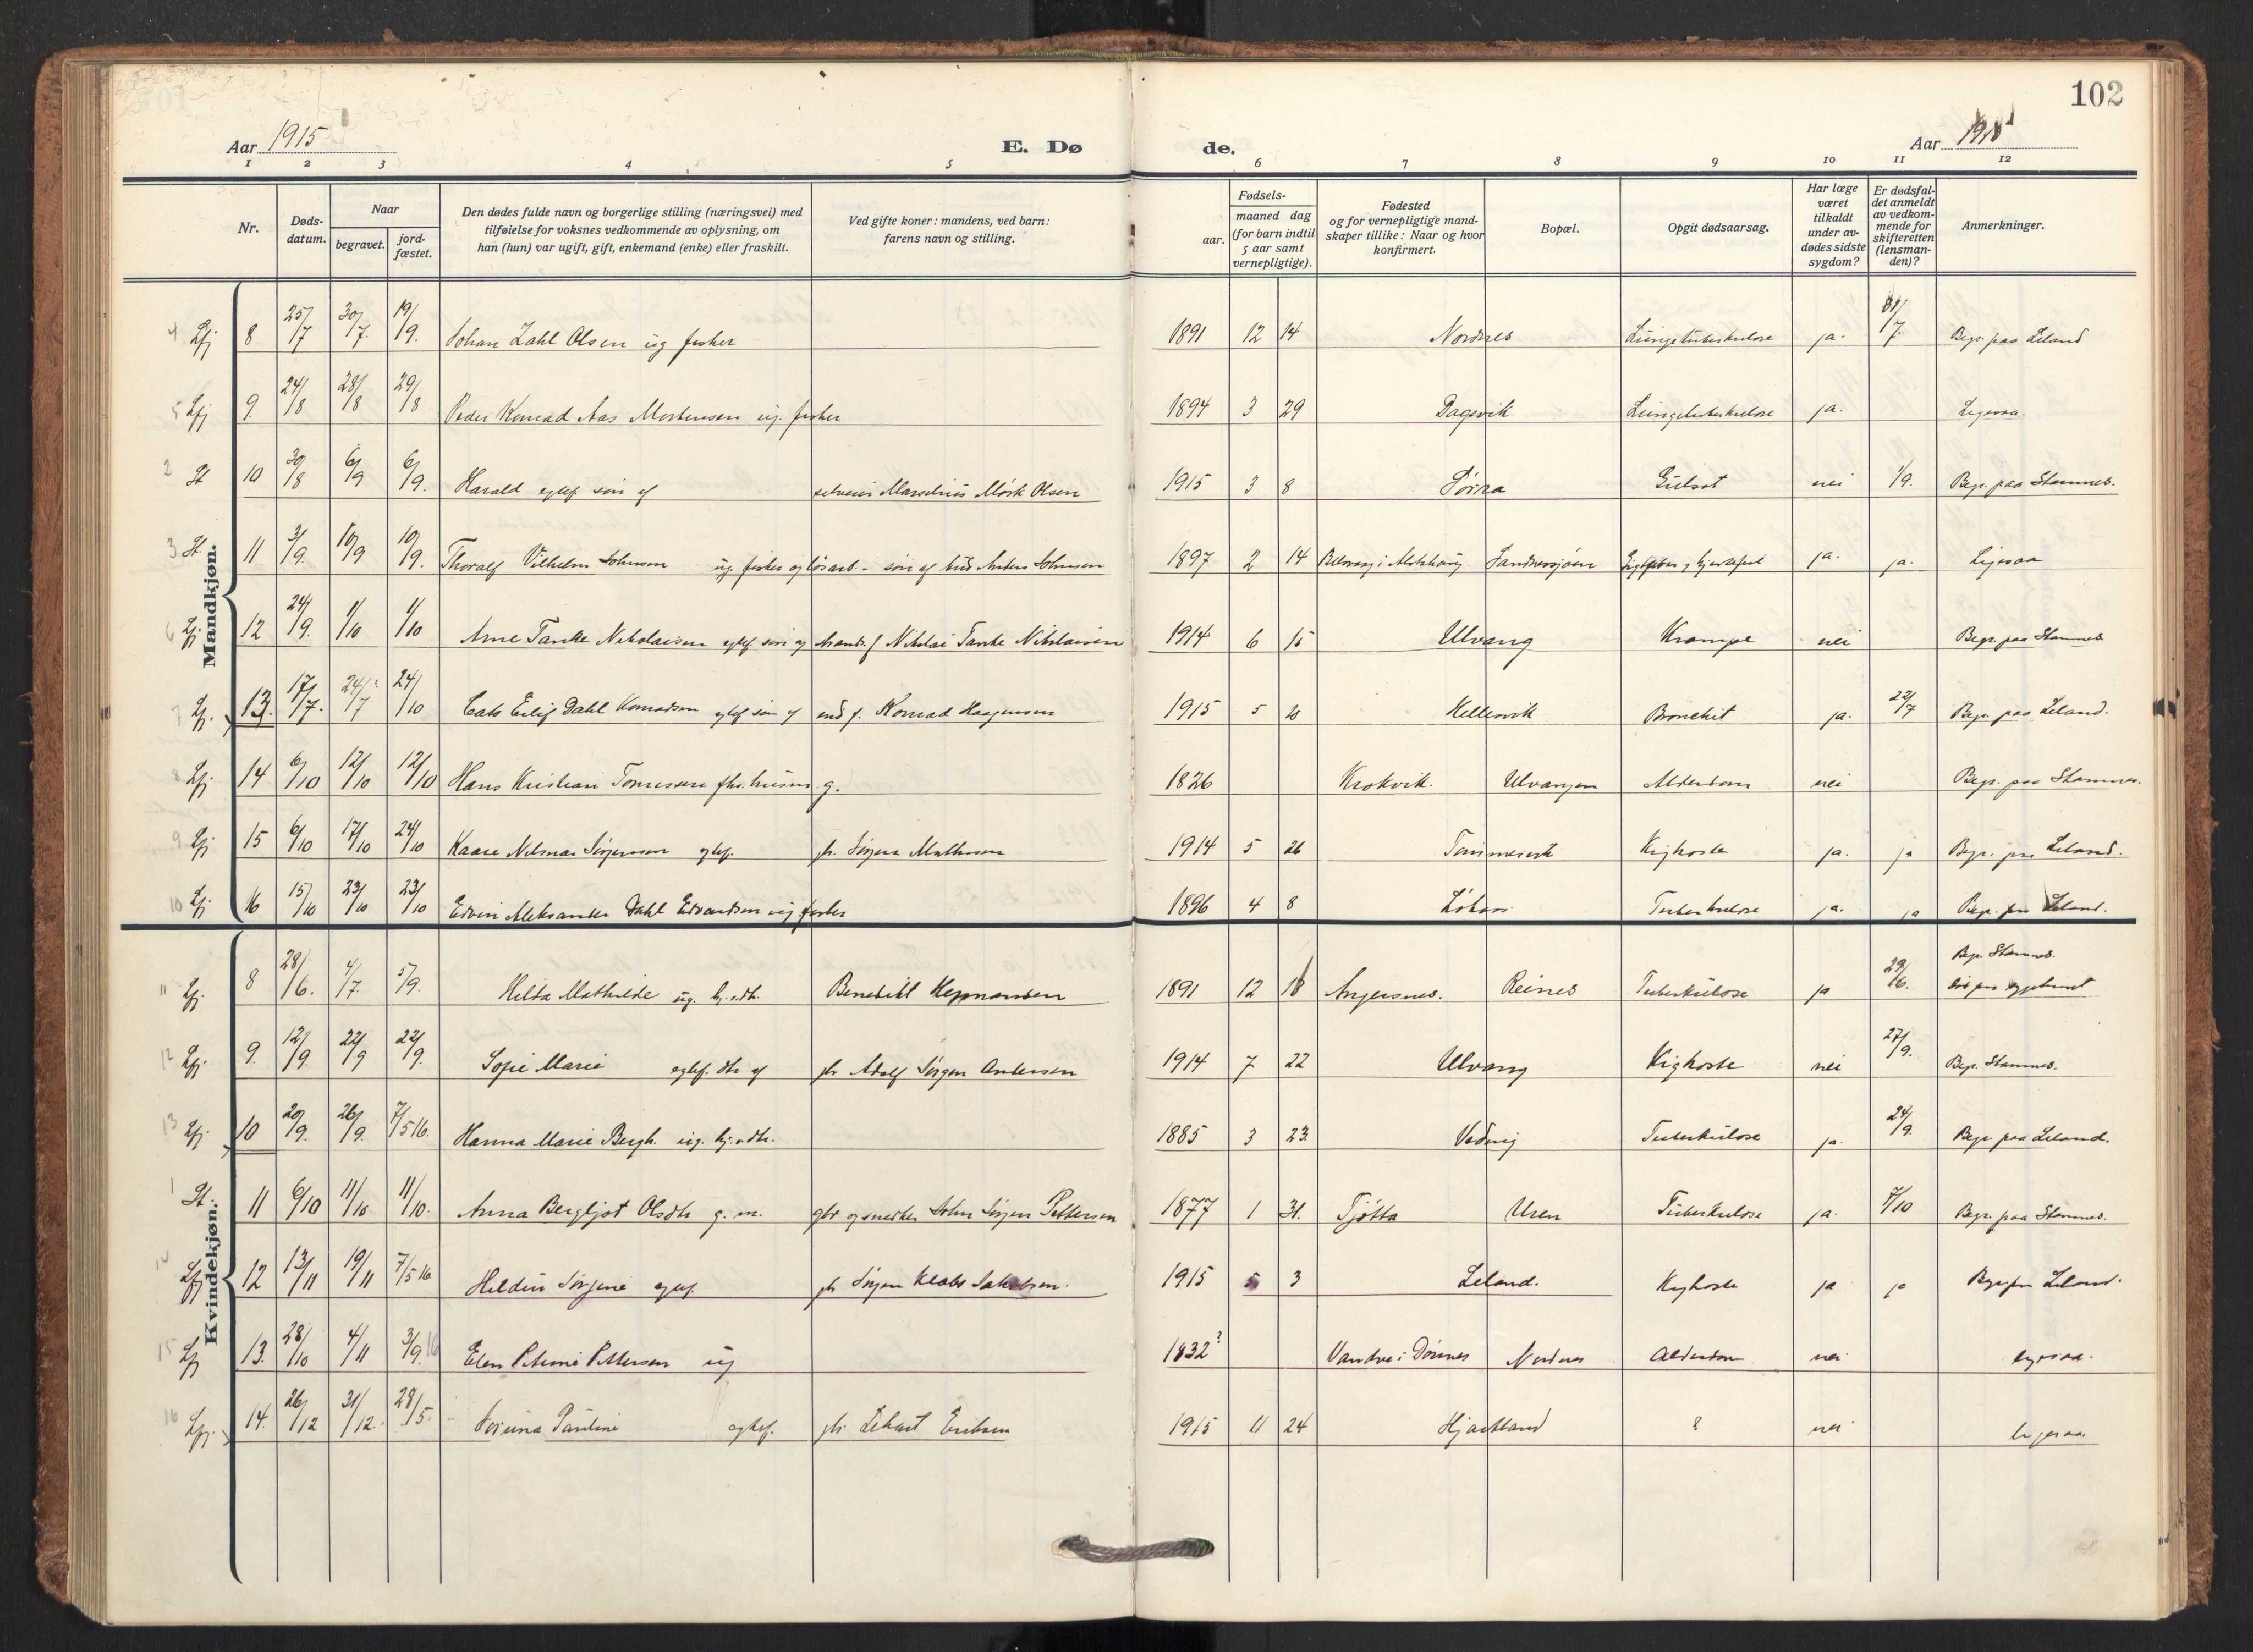 102
Aar 1915 E. Dø de. Aar 1915
1 2 3 4 5 6 7 8 9 10 11 12
Nr.
Døds-
datum.
Naar
begravet.
jord-
fæstet.
Den dødes fulde navn og borgerlige stilling (næringsvei) med
tilføielse for voksnes vedkommende av oplysning, om
han (hun) var ugift, gift, enkemand (enke) eller fraskilt.
Ved gifte koner: mandens, ved barn:
farens navn og stilling.
Fødsels-
aar.
maaned dag
(for barn indtil
5 aar samt
vernepligtige).
Fødested
og for vernepligtige mand-
skaper tillike: Naar og hvor
konfirmert.
Bopæl.
Opgit dødsaarsag.
Har læge
været
tilkaldt
under av-
dødes sidste
sygdom?
Er dødsfal-
det anmeldt
av vedkom-
mende for
skifteretten
(lensman-
den)?
Anmerkninger.
Mandkjøn.
4 Lfj 8 25/7 30/7. 19/9. Johan Zahl Olsen ug fisker 1891 12 14 Nordnes Lungetuberkulose ja. 31/7. Begr. paa Leland
5 Lfj 9. 24/8 28/8 29/8 Peder Konrad Aas Mortensen ug. fisker 1894 3 29 Dagsvik Lungetuberkulose ja. Ligesaa.
2 St 10 30/8 6/9 6/9. Harald egtef søn af selveier Marselius Mörk Olsen 1915 3 8 Sörra Gulsot nei 1/9. Begr. paa Stamnes.
3 St 11 3/9. 10/9 10/9. Thoralf Vilhelm Johnsen ug. fisker og løsarb. - søn af Anders Johnsen 1897 2 14 Sandnessjøen ja. ja. Ligesaa
6 Lfj 12 24/9. 1/10 1/10 Arne Tanke Nikolaisen egtef søn og Nikolai Tanke Nikolaisen 1914 6 15 Ulvang Krampe nei Begr. paa Stamnes
7 Lfj. 13. 17/7. 24/7? 24/10 Dahl Konradsen egtef søn af Konrad Haagensen 1915 5 20 Hellesvik Bronchit ja. 22/7 Begr. paa Leland.
8 Lfj 14 6/10 12/10 12/10 Hans Kristian g. 1826 Krokvik. Ulvangen Alderdom nei Begr. paa Stamnes.
9 Lfj 15 6/10 17/10 24/10 Kaare Sørensen egtef. Mathisen 1914 5 26 Kighoste ja. ja Begr. paa Leland.
10 Lfj 16 15/10 23/10 23/10 Edvin Aleksander Dahl Edvardsen ug fisker 1896 4 8 Tuberkulose ja. ja Begr. paa Leland.
Kvindekjøn.
11 Lfj. 8 28/6. 4/7. 5/9. Hilda Mathilde ug. hj. v. dtr. Benedikt 1891 12 18 Angersnes. Reines Tuberkulose ja 29/6. Begr. Stamnes.
12 Lfj. 9. 12/9. 22/9 22/9. Sofie Marie egtef. dtr af Adolf Jørgen Andersen 1914 7 22 Ulvang Kighoste nei 27/9. Begr. Stamnes.
13 Lfj 10 20/9. 26/9. 7/5 16. Hanna Marie Bergh. ug. hj. v. dtr. 1885 3 23. Tuberkulose ja. 24/9. Begr. paa Leland.
1 St. 11 6/10 11/10 11/10. Anna Bergljot Olsdtr g. m. gbr og snedker John Jørgen Pettersen 1877 1 31. Tjøtta Uren Tuberkulose ja. 7/10 Begr. paa Stamnes.
14 Lfj 12 13/11 19/11 7/5 16 Jørgine egtef Jørgen Klabo Jakobsen. 1915 5 3 Leland. Kighoste ja ja Begr. paa Leland.
15 Lfj 13. 28/10 4/11 3/9. 16 Elen Petrine Pettersen ug 1832? Vandve i Dønnes Nordnes Alderdom nei ligesaa.
16 Lfj. 14. 26/12 31/12. 28/5. Pauline egtef. Eriksen 1915 11 24 Hjartland ? nei ligesaa